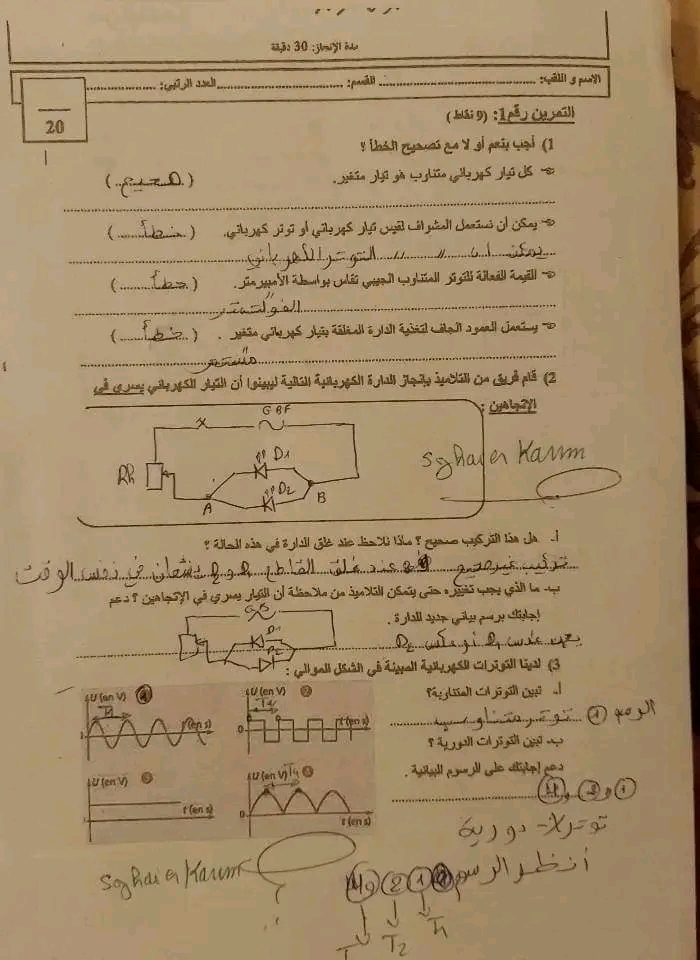 مدة الإنجاز: 30 دقيقة
الاسم و اللقب: ........ القسم: ........ العدد الرتبي: ........
20
التمرين رقم1: (9 نقاط)
1) أجب بنعم أو لا مع تصحيح الخطأ ؟
كل تيار كهربائي متناوب هو تيار متغير. (صحيح)
يمكن أن نستعمل المشواف لقيس تيار كهربائي أو توتر كهربائي. (خطأ)
يمكن ا " " " التوتر الكهربائي
القيمة الفعالة للتوتر المتناوب الجيبي تقاس بواسطة الأمبيرمتر. (خطأ)
الفولتمتر
يستعمل العمود الجاف لتغذية الدارة المغلقة بتيار كهربائي متغير . (خطأ)
مستمر
2) قام فريق من التلاميذ بإنجاز الدارة الكهربائية التالية ليبينوا أن التيار الكهربائي يسري في
الإتجاهين :
GBF
Rh
D1
D2
A
B
Sghaier Karim
أ- هل هذا التركيب صحيح ؟ ماذا نلاحظ عند غلق الدارة في هذه الحالة ؟
تركيب غير صحيح عند غلق القاطع يشعان في نفس الوقت
ب- ما الذي يجب تغييره حتى يتمكن التلاميذ من ملاحظة أن التيار يسري في الإتجاهين ؟ دعم
إجابتك برسم بياني جديد للدارة .
D1
D2
D1 أو عكس D2
3) لدينا التوترات الكهربائية المبينة في الشكل الموالي :
أ- تبين التوترات المتناوبة؟
الرسم 1 توتر متناوب
ب- تبين التوترات الدورية ؟
دعم إجابتك على الرسوم البيانية .
U (en V) 1
T1
t (en s)
U (en V) 2
0
t (en s)
U (en V) 3
t (en s)
U (en V) T4 4
0
t (en s)
1 و 2 و 4
توترات دورية
أنظر الرسم 1 2 و 4
T1
T2
Sghaier Karim